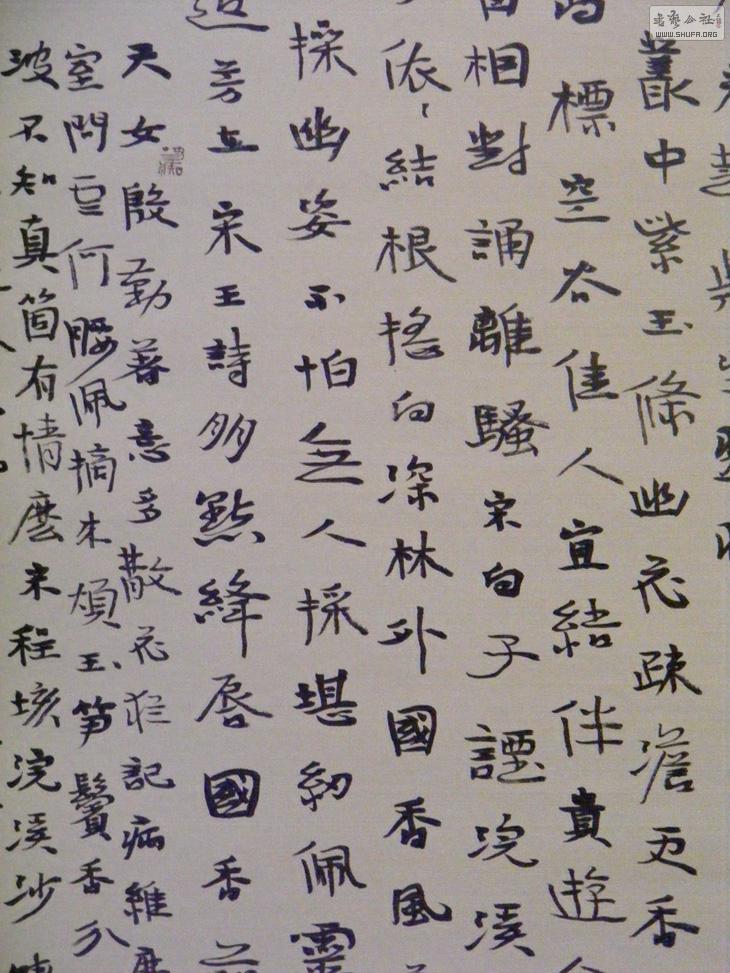 叢中紫玉條幽花疎澹更香
標空谷佳人宜結伴貴遊
相對誦離騷宋向子諲浣溪
依依結根搖向深林外國香風
採幽姿不怕無人採堪紉佩靈
芳宋玉詩多點絳唇國香
天女殷勤著意多散花猶記病維摩
室問云何腰佩摘來煩玉筍鬢香分
波不知真箇有情麼宋程垓浣溪沙
書藝公社
WWW.SHUFA.ORG